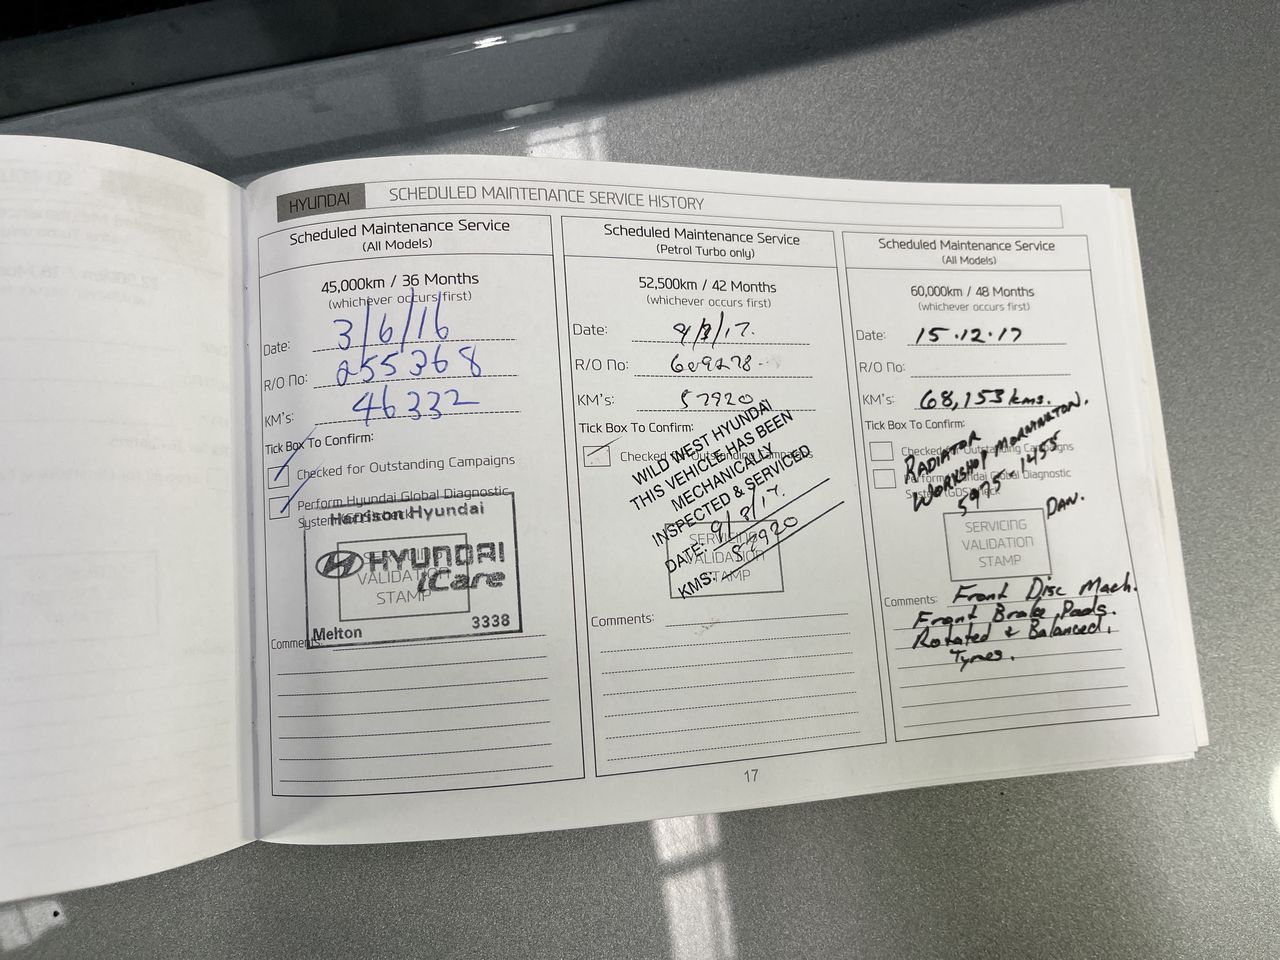 HYUNDAI
SCHEDULED MAINTENANCE SERVICE HISTORY
Scheduled Maintenance Service
(All Models)
45,000km / 36 Months
(whichever occurs first)
Date: 3/6/16
R/O No: 255368
KM's: 46332
Tick Box To Confirm:
Checked for Outstanding Campaigns
Perform Hyundai Global Diagnostic
System
Harrison Hyundai
HYUNDAI
iCare
VALIDATION
STAMP
Melton 3338
Comments:
Scheduled Maintenance Service
(Petrol Turbo only)
52,500km / 42 Months
(whichever occurs first)
Date: 9/8/17.
R/O No: 609278
KM's: 57920
Tick Box To Confirm:
Checked for Outstanding Campaigns
WILD WEST HYUNDAI
THIS VEHICLE HAS BEEN
MECHANICALLY
INSPECTED & SERVICED
DATE: 9/8/17.
KMS: 57920
SERVICING
VALIDATION
STAMP
Comments:
Scheduled Maintenance Service
(All Models)
60,000km / 48 Months
(whichever occurs first)
Date: 15.12.17
R/O No:
KM's: 68,153 kms.
Tick Box To Confirm:
Checked for Outstanding Campaigns
Perform Hyundai Global Diagnostic
System (GDS) check
RADIATOR
WORKSHOP MORNINGTON.
5975-1455
DAN.
SERVICING
VALIDATION
STAMP
Comments: Front Disc Mach.
Front Brake Pads.
Rotated & Balanced,
Tyres.
17